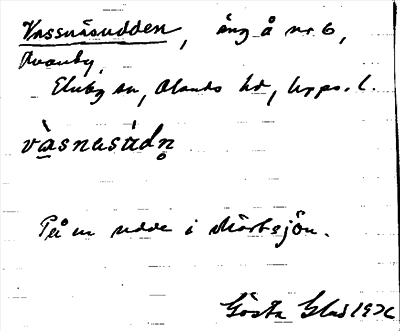 Vassnäsudden, äng å nr 6,
Kvarnby,
Ekeby sn, Olands hd, Upps. l.
vàsnasùdn̥
På en udde i Mörtsjön.
Gösta Glad 1926